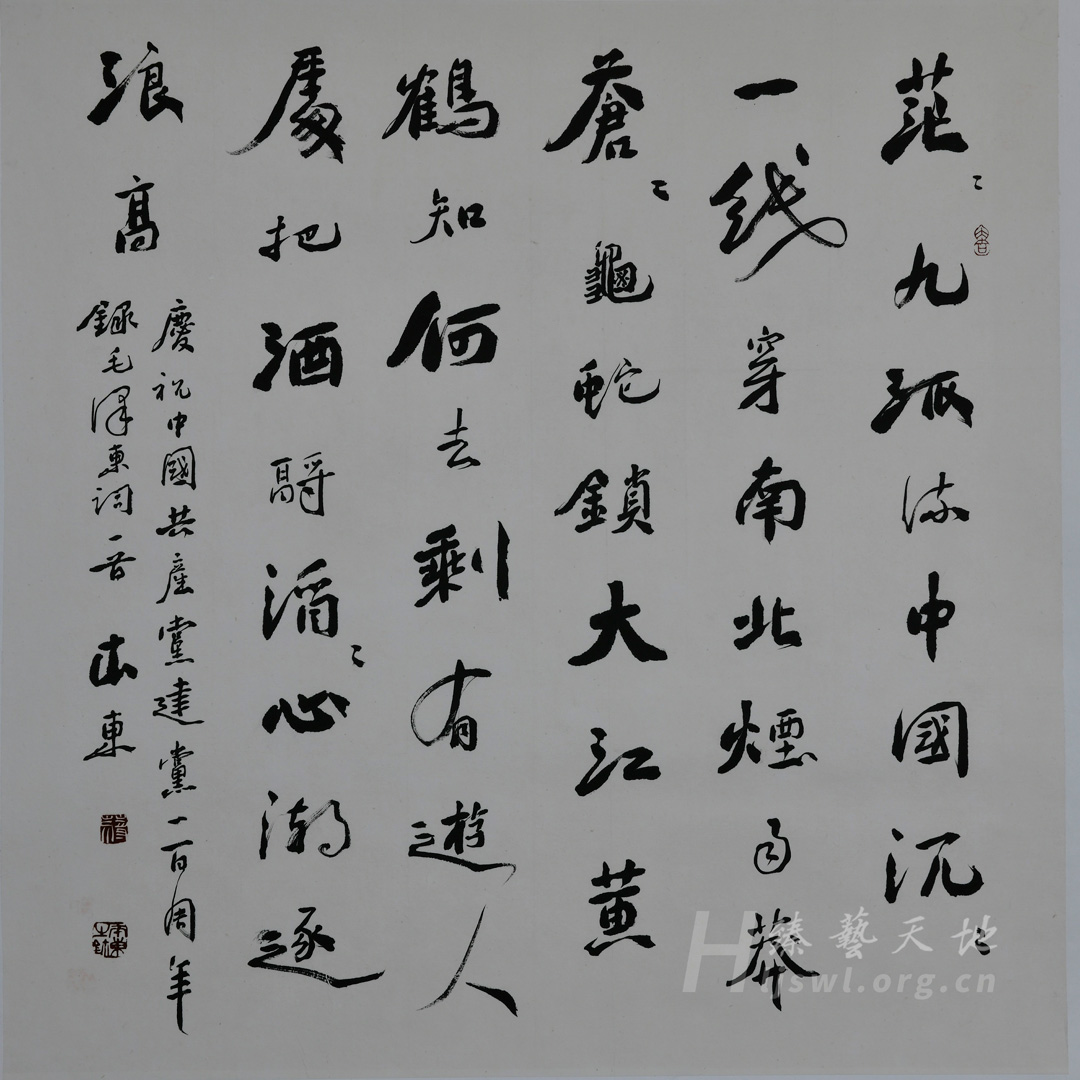 茫〻九派流中國沉〻
一线穿南北煙雨莽
蒼〻龜蛇鎖大江黄
鶴知何去剩有遊人
處把酒酹滔〻心潮逐
浪高
慶祝中國共產黨建黨一百周年
錄毛澤東詞一首
臻藝天地